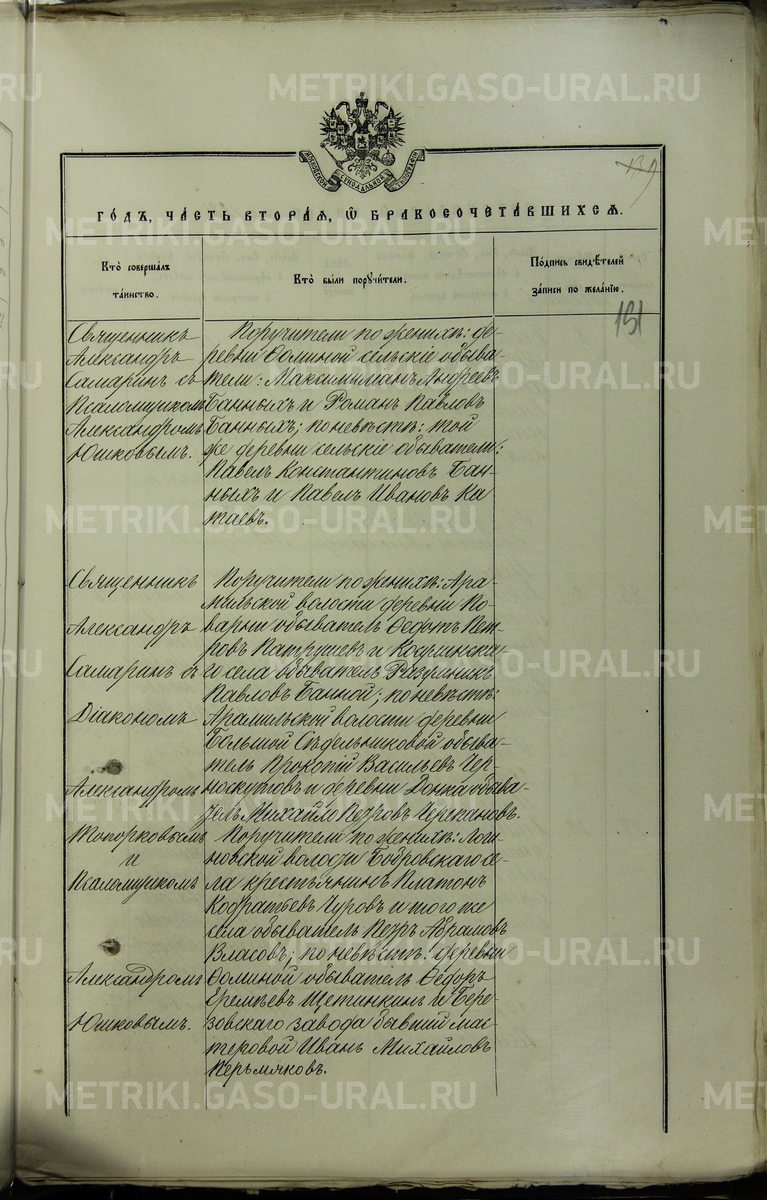 METRIKI.GASO-URAL.RU
МОСКОВСКОЙ СѴНОДАЛЬНОЙ ТИПОГРАФІИ
139
ГО́ДЪ, ЧА́СТЬ ВТОРА́Я, Ѡ҆ БРАКОСОЧЕТА́ВШИХСЯ.
Кто̀ соверша́лъ та́инство.
Кто̀ бы́ли поручи́тели.
По́дпись свидѣ́телей за́писи по жела́нїю.
151
Священникъ
Александръ
Самаринъ съ
Псаломщикомъ
Александромъ
Юшковымъ.
Поручители по женихѣ: де-
ревни Ѳоминой сельскіе обыва-
тели: Максимиліанъ Андреевъ
Банныхъ и Романъ Павловъ
Банныхъ; по невѣстѣ: той
же деревни сельскіе обыватели:
Павелъ Константиновъ Бан-
ныхъ и Павелъ Ивановъ Ки-
таевъ.
Священникъ
Александръ
Самаринъ съ
Діакономъ
Александромъ
Топорковымъ
и
Псаломщикомъ
Александромъ
Юшковымъ.
Поручители по женихѣ: Ара-
мильской волости деревни По-
варни обыватель Ѳедотъ Пет-
ровъ Патрушевъ и Косулинска-
го села обыватель
Павловъ Банной; по невѣстѣ:
Арамильской волости деревни
Большой Сѣдельниковой обыва-
тель Прокопій Васильевъ Чер-
носкутовъ и деревни обыва-
тель Михайло Петровъ
Поручители по женихѣ: Логи-
новской волости Бобровскаго се-
ла крестьянинъ Платонъ
Кодратьевъ Чуровъ и того же
села обыватель Петръ Абрамовъ
Власовъ; по невѣстѣ: деревни
Ѳоминой обыватель Ѳедоръ
Еремѣевъ Щетинкинъ и Бере-
зовскаго завода бывшій мас-
теровой Иванъ Михайловъ
Пермяковъ.